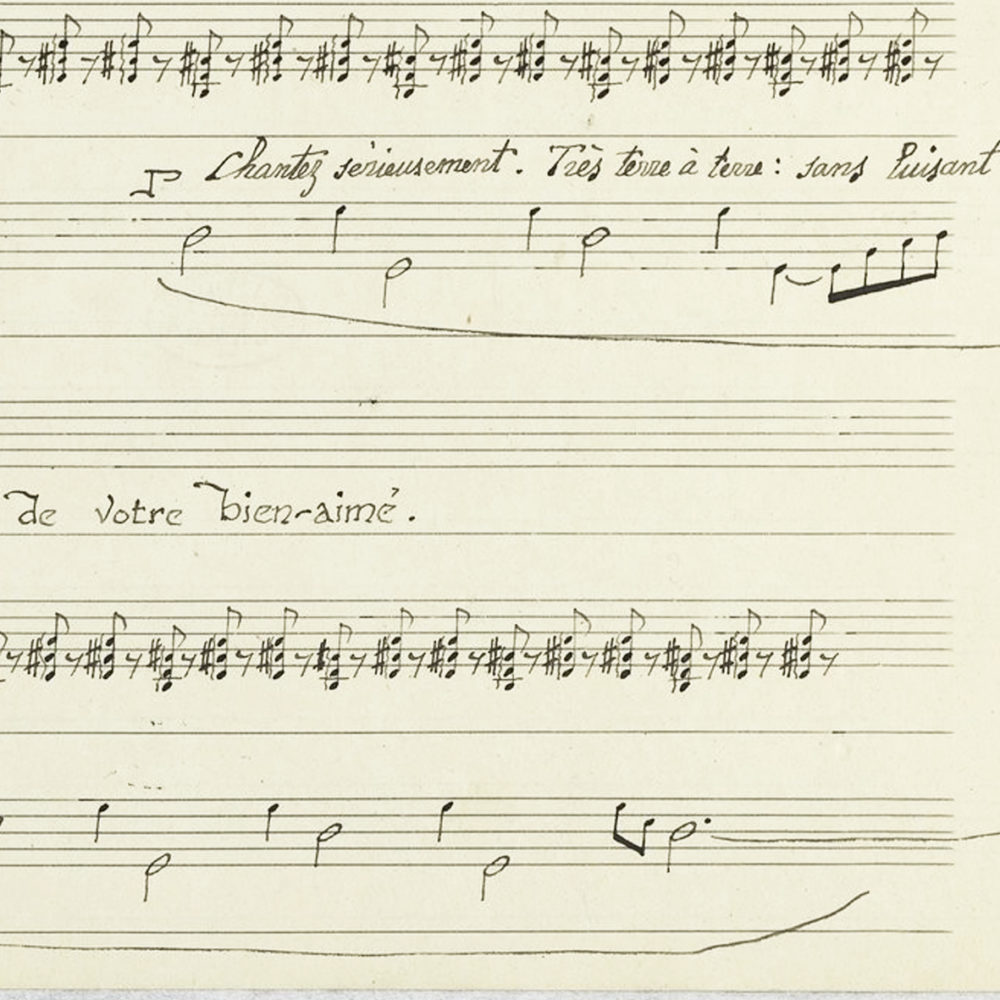 P
Chantez sérieusement. Très terre à terre: sans luisant
de votre bien-aimé.